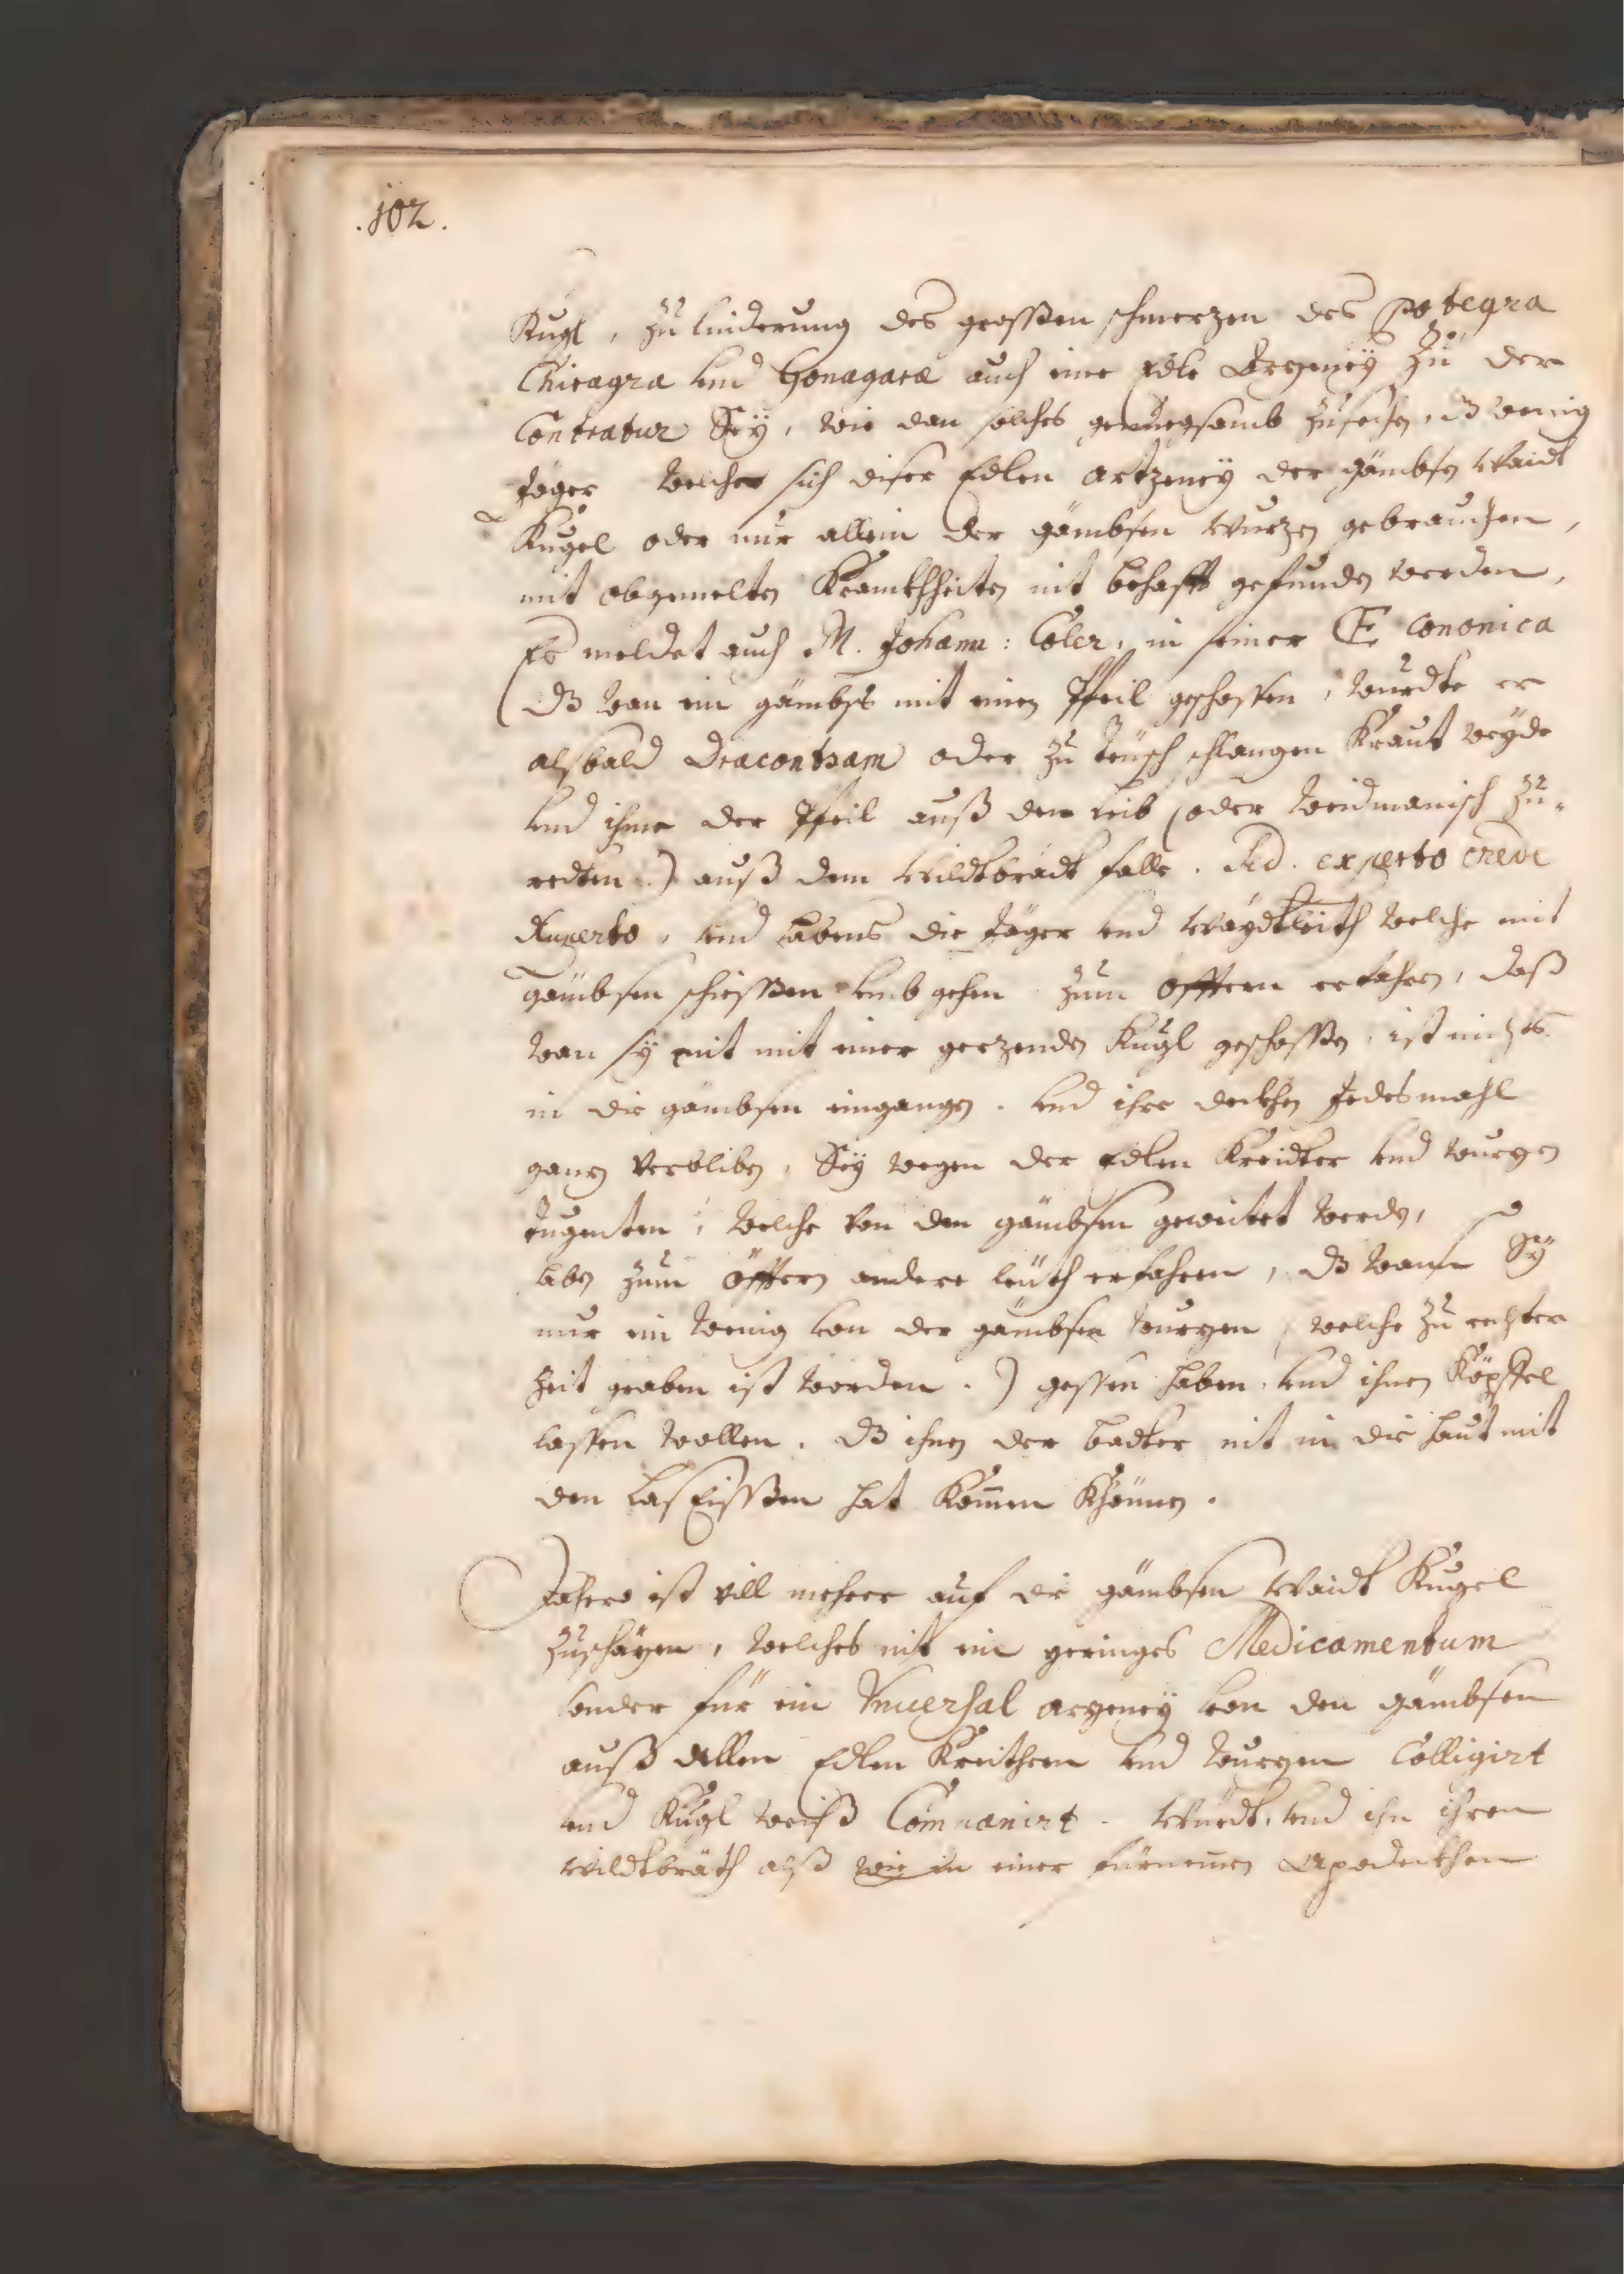 .102.
Kugl, zu linderung des grossen schmerzen des potegra
Chiragra vnd Gonagaræ auch eine Edle Erzeneÿ zu der
Contratur Seÿ, wie dan solches genuegsamb zusehen, dz wenig
Jäger welche sich diser Edlen artzeneÿ der gämbsen Waidt
Kugel oder nur allein der gämbsen Wurzen gebrauchen,
mit obgemelten Kranckhheiten nit behafft gefunden werden,
Es meldet auch M. Johann: Coler, in seiner Œ cononica
(dz wan ein gämbs mit einen Pfeil geschossen, wurdte er
alsbald dracontram oder zu teusch schlangen Kraut
vnd ihme der Pfeil auß den leib (oder weidmanisch zu-
redten.) auß dem Wildtbrädt falle. Sed. experto crede
Ruperto, vnd habens die Jäger vnd Waÿdtleith welche mit
gämbsen schiessen vmb gehen zum öfftern erfahren, daß
wan sÿ nit mit einer gerzenden Kugl geschossen, ist nichts
in die gämbsen eingangen. vnd ihre deckhen Jedesmahl
ganz verbliben, Seÿ wegen der Edlen Kreidter vnd wurzen
tugenten, welche von den gämbsen geweidet werden,
haben zum öffern andere leuth erfahren, dz wann Sÿ
nur ein wenig von der gämbsen wurzen, welche zu rechter
Zeit graben ist worden.) gessen haben, vnd ihnen Köpffel
lassen wollen. dz ihnen der badter nit in die haut mit
den laseissen hat Komen Khönnen.
ist vill mehrer auf die gämbsen Waidt Kugel
zuschäzen, welches nit ein geringes Medicamentum
sonder für ein Vniuersal arzeneÿ von den gämbsen
auß allen Edlen Kreithern vnd wurzen Colligirt
vnd Kugl weiß Componirt. Würdt, vnd in ihren
Wildtbräth alß wie in einer fürnemen Apodeckhen